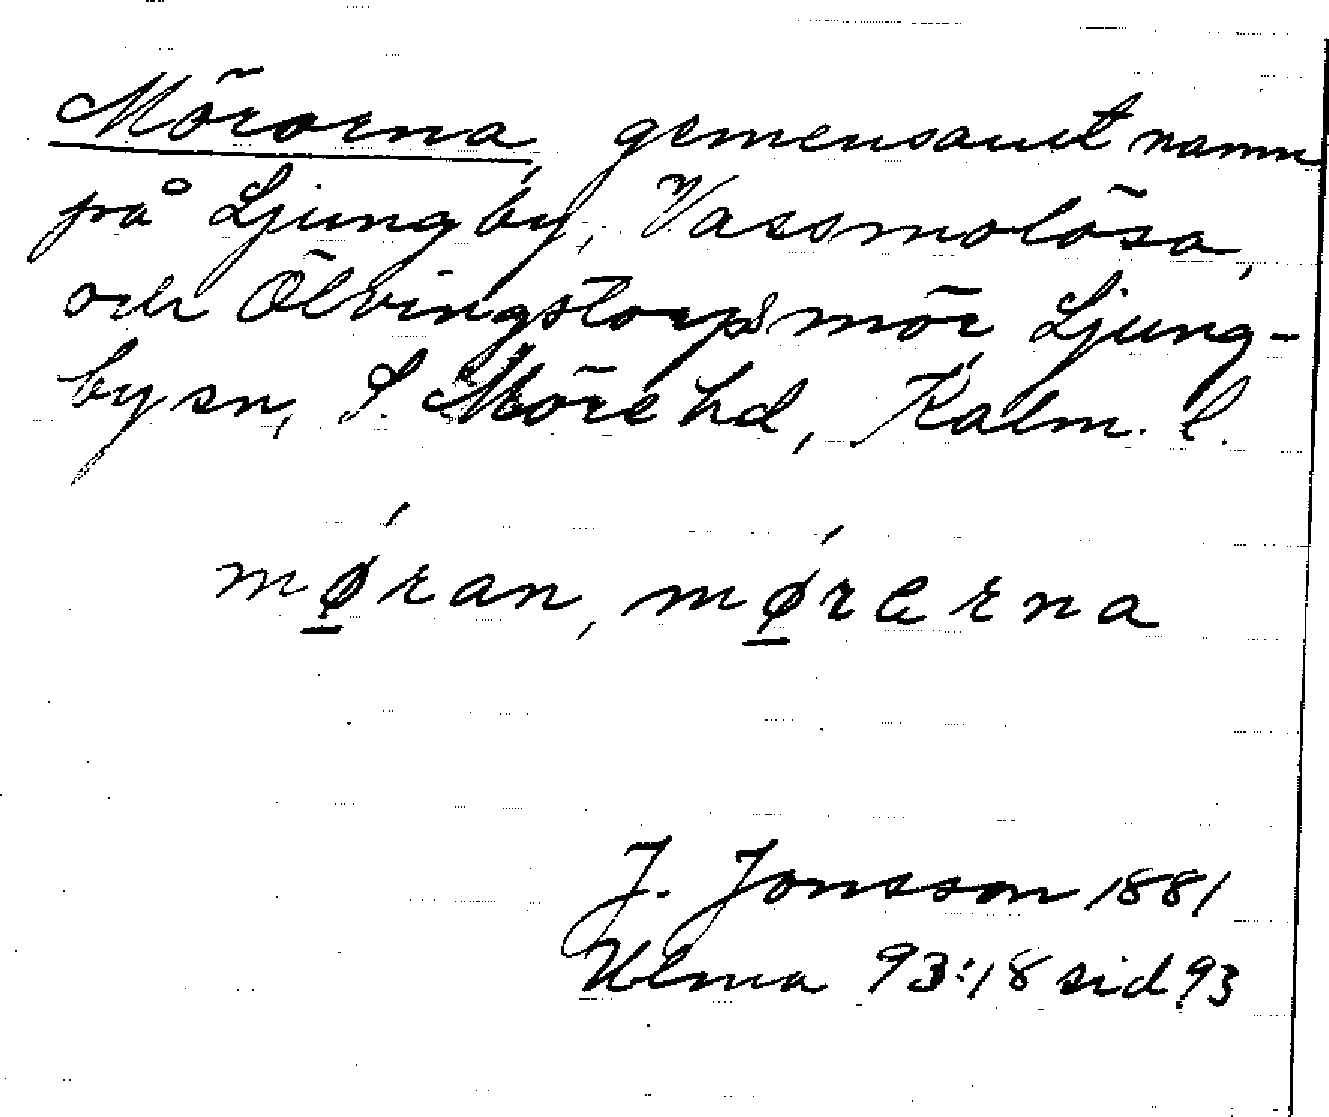 Mörorna, gemensamt namn
på Ljungby, Vassmolösa,
och Ölvingstorps mör Ljung-
by sn, S. Möre hd, Kalm. l.
mǿ̲ran, mǿ̲rerna
J. Jonsson 1881
Ulma 93:18 sid 93